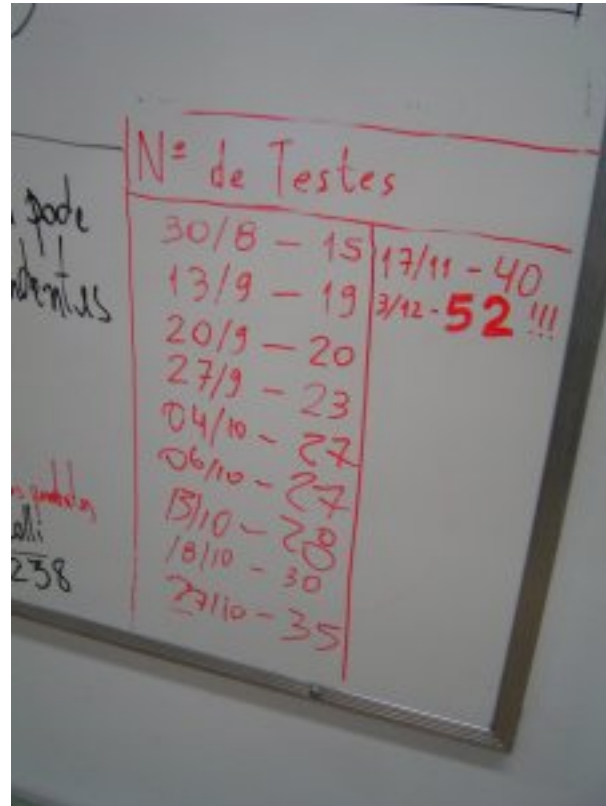 Nº de Testes
30/8 - 15
13/9 - 19
20/9 - 20
27/9 - 23
04/10 - 27
06/10 - 27
13/10 - 28
18/10 - 30
27/10 - 35
17/11 - 40
3/12 - 52 !!!
pode
238